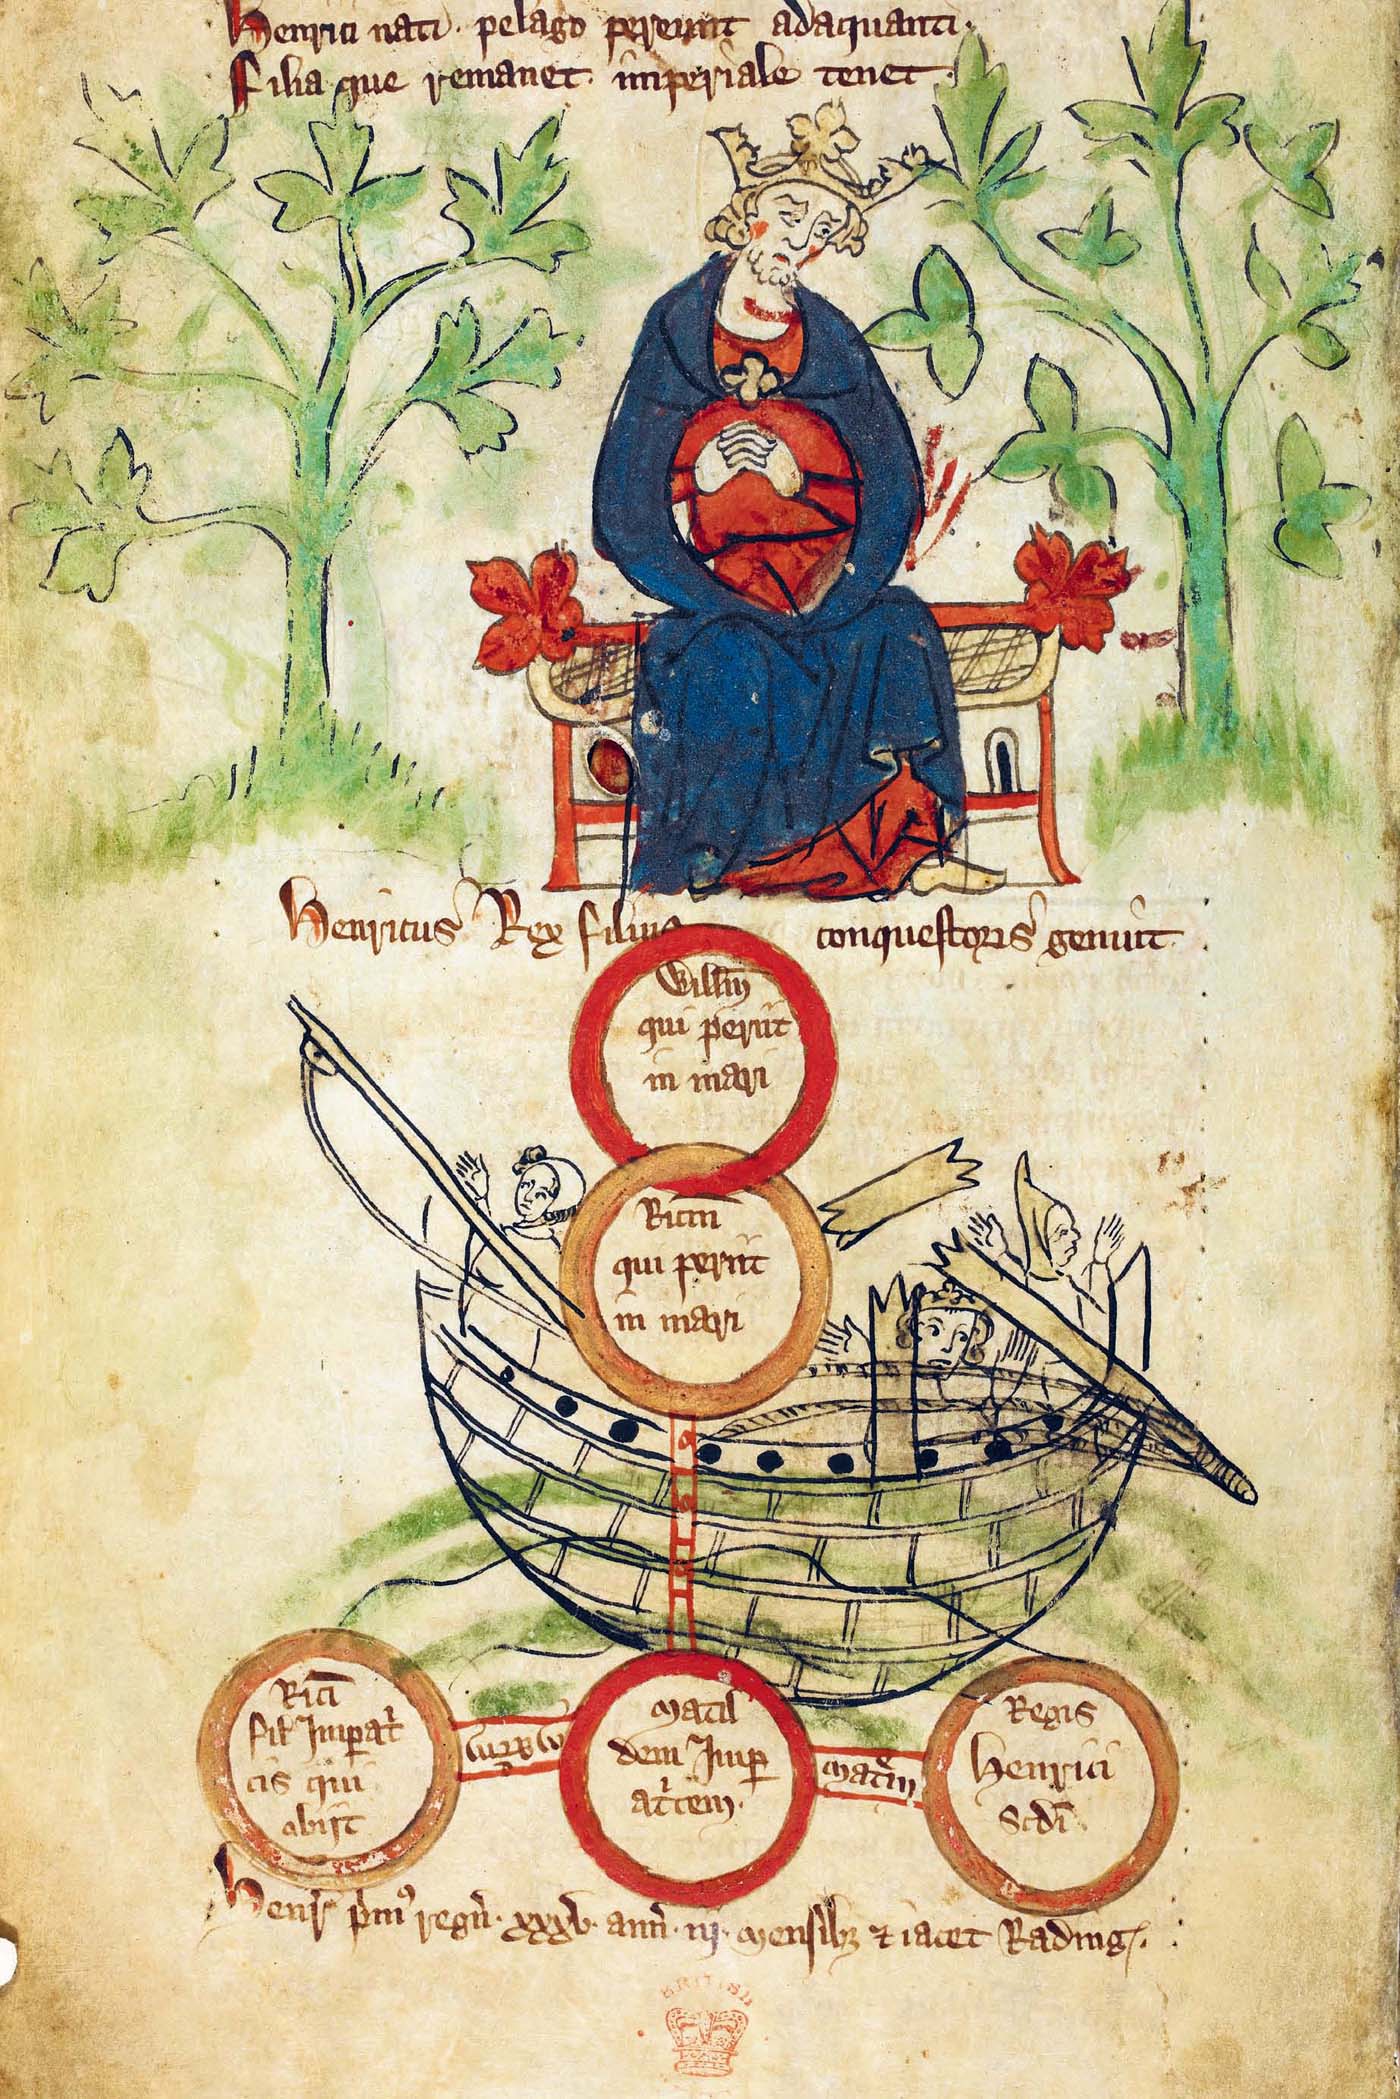 Henrici nati · pelago pereunt adaquanti ·
Filia que remanet · imperiale tenet ·
Henricus Rex filius conquestoris genuit
Willm
qui periit
in mari
Ricm
qui periit
in mari
Rici
fil Impat
cis qui
abiit
Matil
dem Imp
atcem ·
matrem
Regis
Henrici
Scdi
Henr pm9 regn · xxxv · ann · iij · mensibz ⁊ iacet Rading
BRITISH